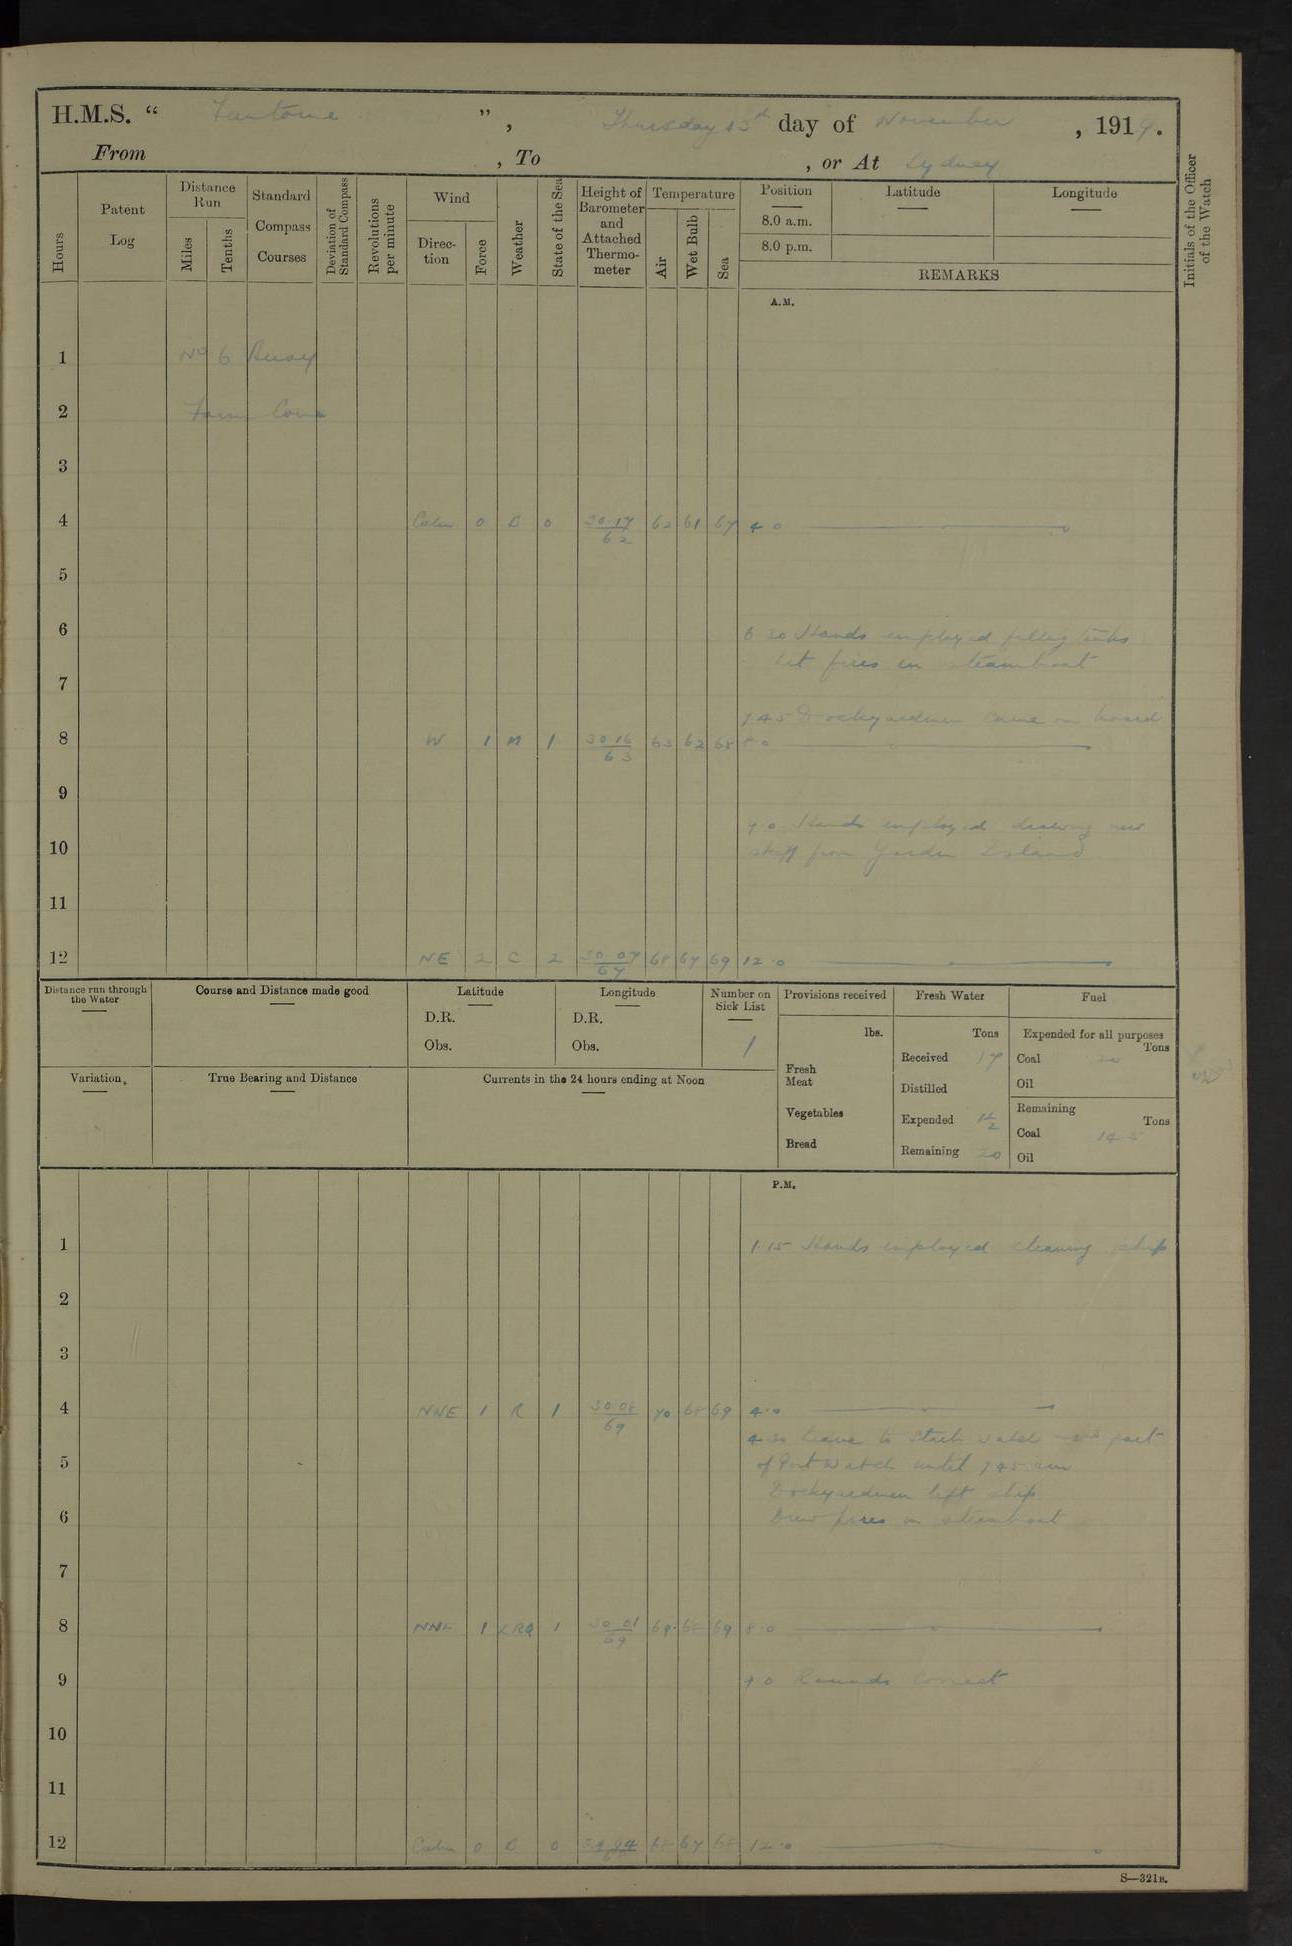 H.M.S. “ Fantome ”, Thursday 13th day of November, 1919.
From , To , or At Sydney
Hours
Patent Log
Distance Run
Miles
Tenths
Standard Compass Courses
Deviation of Standard Compass
Revolutions per minute
Wind
Direction
Force
Weather
State of the Sea
Height of Barometer and Attached Thermometer
Temperature
Air
Wet Bulb
Sea
Position
8.0 a.m.
8.0 p.m.
Latitude
Longitude
REMARKS
Initials of the Officer of the Watch
A.M.
1 No 6 Buoy
2 Farm Cove
3
4 Calm 0 B 0 30.17/62 62 61 67 4 0
5
6 6 30 Hands employed filling tanks
Lit fires in steamboat
7
7 45 Dockyardmen came on board
8 W 1 M 1 30.16/63 63 62 68 8 0
9
Hands employed drawing new
10 stuff from Garden Island
11
12 NE 2 C 2 30.07/67 68 67 69 12.0
Distance run through the Water
Course and Distance made good
Latitude
D.R.
Obs.
Longitude
D.R.
Obs.
Number on Sick List
1
Provisions received
lbs.
Fresh Meat
Vegetables
Bread
Fresh Water
Tons
Received 17
Distilled
Expended
Remaining 20
Fuel
Expended for all purposes
Tons
Coal
Oil
Remaining
Tons
Coal 145
Oil
Variation.
True Bearing and Distance
Currents in the 24 hours ending at Noon
P.M.
1 1.15 Hands employed cleaning ship
2
3
4 NNE 1 R 1 30.08/69 70 68 69 4.0
4 30 Leave to Starb watch and part
5 of Port Watch until 7 45 am
Dockyardmen left ship
6 Drew fires in steamboat
7
8 NNE 1 1 30.01/69 69 68 69 8.0
9 9 0 Rounds Correct
10
11
12 Calm 0 B 0 68 67 68 12.0
S—321B.